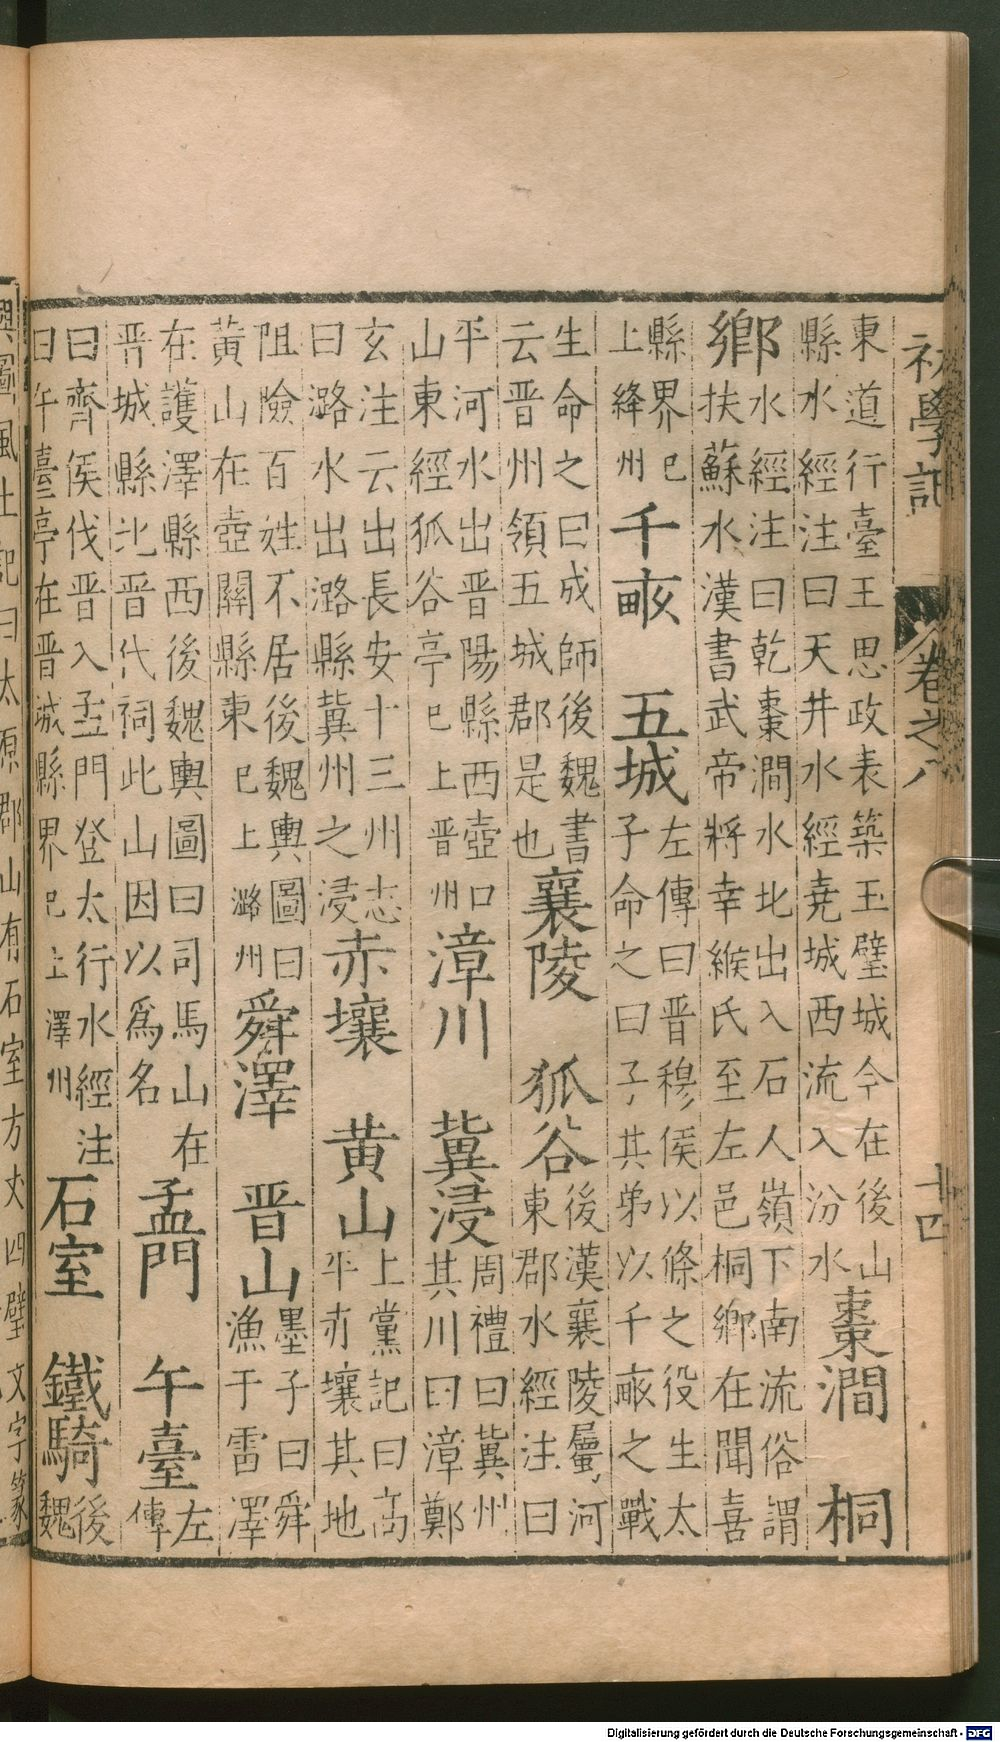 初學記
卷之八
十四
東道行臺王思政表築玉璧城今在後山
縣水經注曰天井水經堯城西流入汾水
棗澗 桐
鄉
水經注曰乾棗澗水北出入石人嶺下南流俗謂
扶蘇水漢書武帝將幸緱氏至左邑桐鄉在聞喜
縣界已
上絳州
千畝 五城
左傳曰晉穆侯以條之役生太
子命之曰子其弟以千畝之戰
生命之曰成師後魏書
云晉州領五城郡是也
襄陵 狐谷
後漢襄陵屬河
東郡水經注曰
平河水出晉陽縣西壺口
山東經狐谷亭已上晉州
漳川 冀浸
周禮曰冀州
其川曰漳鄭
玄注云出長安十三州志
曰潞水出潞縣冀州之浸
赤壤 黄山
上黨記曰高
平赤壤其地
阻險百姓不居後魏輿圖曰
黄山在壺關縣東已上潞州
舜澤 晋山
墨子曰舜
漁于雷澤
在護澤縣西後魏輿圖曰司馬山在
晋城縣北晋代祠此山因以爲名
孟門 午臺
左
傳
曰齊侯伐晋入孟門登太行水經注
曰午臺亭在晋城縣界已上澤州
石室 鐵騎
後
魏
輿圖風土記曰太原郡山有石室方丈四壁文字篆
Digitalisierung gefördert durch die Deutsche Forschungsgemeinschaft - DFG